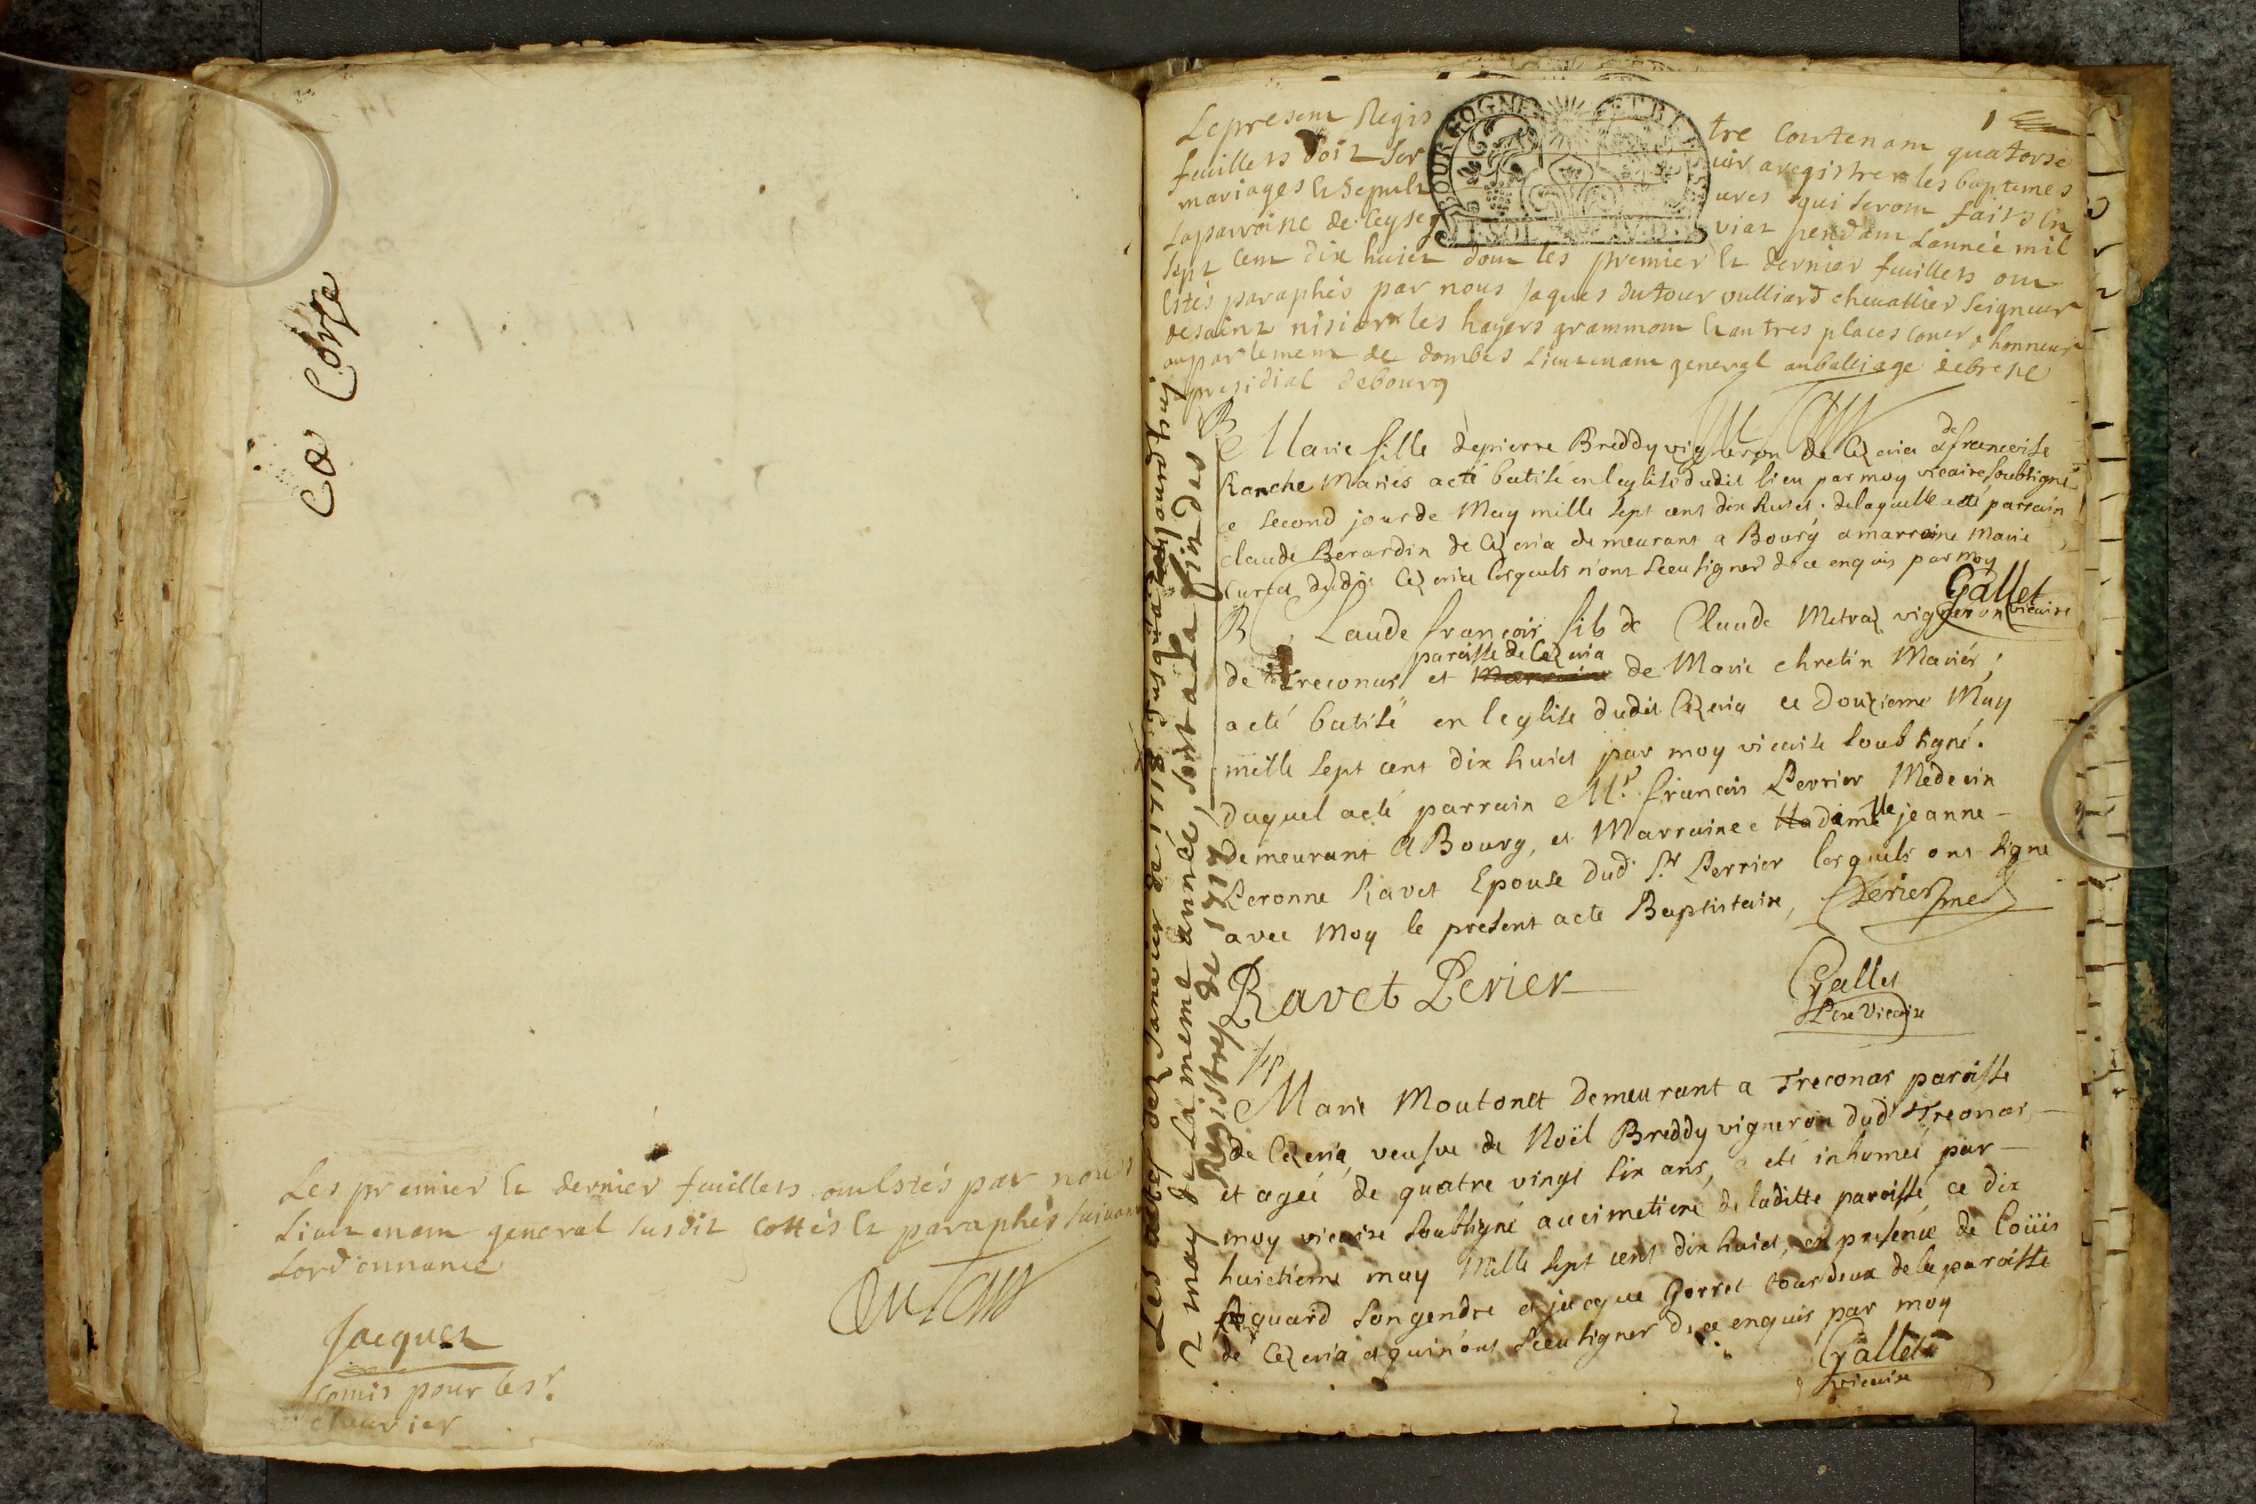 Ca Corte
Les premier Et dernier feuillets ont Estés par nous
Lieutenant general susdit cottés Et paraphés suivant
Lordonnance
Dutour
Jacquet
comis pour le sr.
chevrier
1
Le present Regis tre Contenant quatorse
feuillets doit ser vir a registrer les baptemes
mariages Et Sepult ures qui seront faits En
La parroisse de Ceyse viat pendant Lannée mil
BOURGOGNE ET BRESSE
Sept Cent dix huict dont les premier Et dernier feuillets ont
Estés paraphés par nous Jaques dutour vulliard chevallier Seigneur
de saint nisier les hayers grammont Et autres places coner d honneur
au parlement de dombes Lieutenant general au balliage de bresse
presidial de bourg
Dutour
Les actes des Janvier de 1718 jusqu'au
2 may de la meme année, sont a la fin des
Registres de 1717
B
Marie fille de pierre Breddy vigneron de Cezeria et de francoise
Ranche Mariés a eté batisé en l'eglise dudit lieu par moy vicaire soubsigné
ce second jour de May mille sept cent dix huict. de laquelle a eté parrain
claude Berardin de Cezeria demeurant a Bourg a marraine Marie
Curtet dudit Cezeria lesquels n'ont sceu signer de ce enquis par moy
Gallet
vicaire
B
Claude francois fils de Claude Metraz vigneron
paroisse de Cezeria
de Treconas et Marraine de Marie chretin Mariés,
a eté batisé en l'eglise dudit Cezeria ce Douzieme May
mille sept cent dix huict par moy vicaire soubsigné.
Duquel a eté parrain Mr. francois Perrier Medecin
demeurant A Bourg, et Marraine Madame lle jeanne-
Peronne Ravet Epouse dud. Sr. Perrier lesquels ont signe
avec Moy le present acte Baptistaire, Perier med
Ravet Perier
Gallet
Ptre Vicaire
Sep
Marie Moutonet Demeurant a Treconas paroisse
de Cezeria, veusve de Noël Breddy vigneron dud. Treconas,
et agée de quatre vingt six ans, a eté inhumeé par
moy vicaire soubsigné au cimetiere de laditte paroisse ce dix
huictieme may Mille sept cent dix huict, en presence de Loüis
Poguard son gendre et jacque Gorret tous deux de la paroisse
de Cezeria et qui n'ont sceu signer de ce enquis par moy
Gallet
vicaire